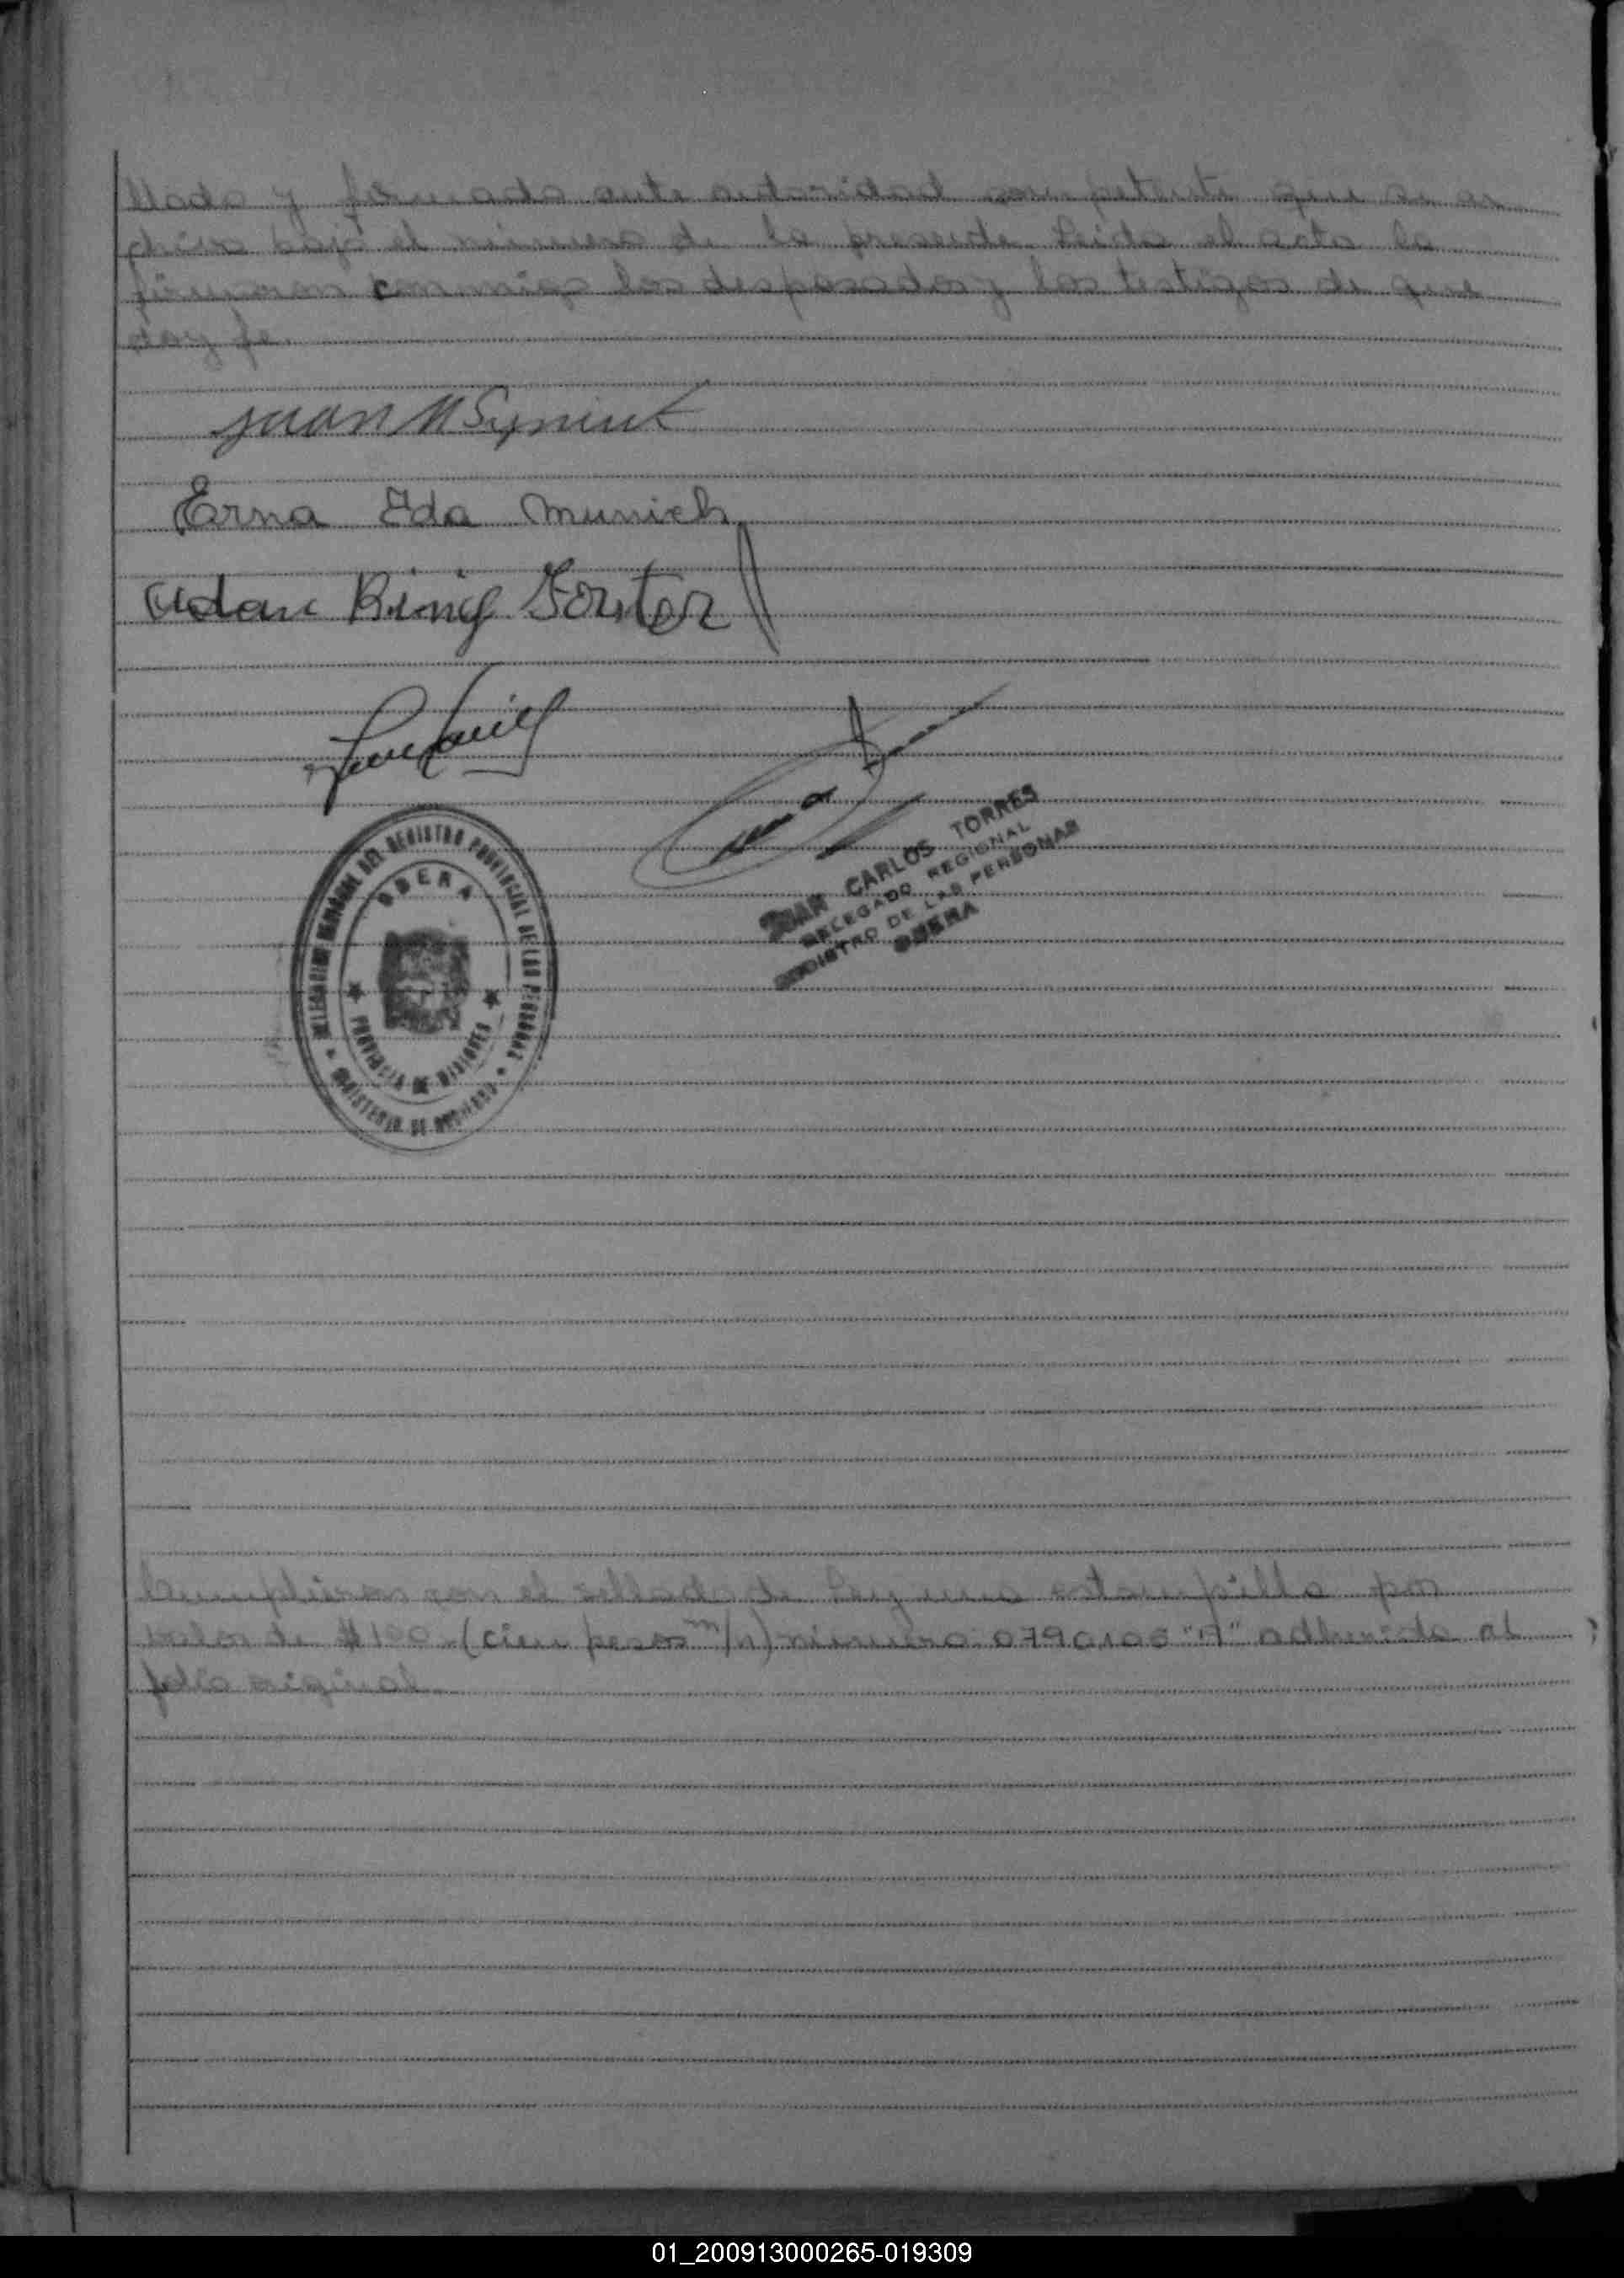 llada y firmada ante autoridad competente que se ex
pidio bajo el numero de la presente. Leida el acta la
firmaron conmigo los desposados y los testigos de que
doy fe.
Juan M
Erna Eda Munich
Adan King
OBERA
PROVINCIA DE MISIONES
DELEGACION DEL REGISTRO PROVINCIAL DE LAS PERSONAS
MINISTERIO DE GOBIERNO
JUAN CARLOS TORRES
DELEGADO REGIONAL
REGISTRO DE LAS PERSONAS
OBERA
con el sellado de Ley una estampilla por
valor de $100 (cien pesos m/n) numero 07990100 "A" adherida al
folio original.
01_200913000265-019309